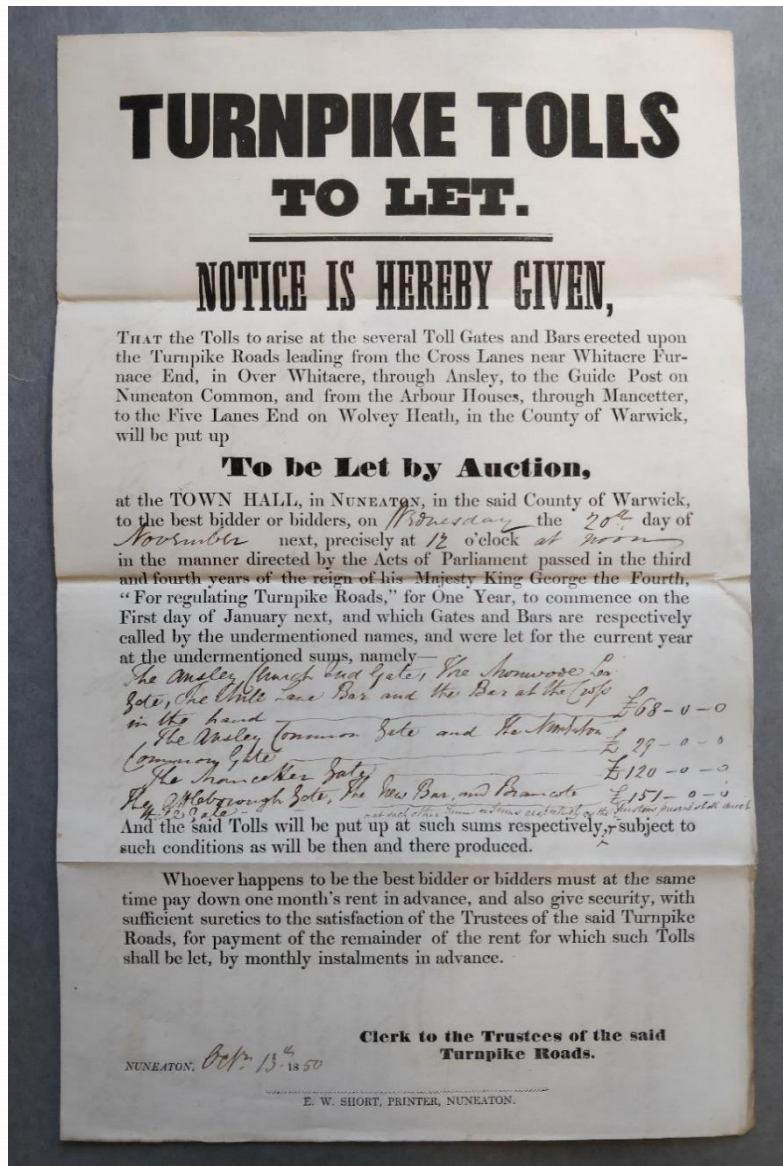 TURNPIKE TOLLS
TO LET.
NOTICE IS HEREBY GIVEN,
THAT the Tolls to arise at the several Toll Gates and Bars erected upon
the Turnpike Roads leading from the Cross Lanes near Whitacre Fur-
nace End, in Over Whitacre, through Ansley, to the Guide Post on
Nuneaton Common, and from the Arbour Houses, through Mancetter,
to the Five Lanes End on Wolvey Heath, in the County of Warwick,
will be put up
To be Let by Auction,
at the TOWN HALL, in NUNEATON, in the said County of Warwick,
to the best bidder or bidders, on Wednesday the 20th day of
November next, precisely at 12 o'clock at noon
in the manner directed by the Acts of Parliament passed in the third
and fourth years of the reign of his Majesty King George the Fourth,
"For regulating Turnpike Roads," for One Year, to commence on the
First day of January next, and which Gates and Bars are respectively
called by the undermentioned names, and were let for the current year
at the undermentioned sums, namely—
The Ansley Church End Gate, The
Gate, the Lane Bar and the Bar at the Cross
in the hand £68-0-0
The Ansley Common Gate and The Nuneaton
Common Gate £29-0-0
The Mancetter Gate £120-0-0
The Attleborough Gate, The New Bar, and Bramcote £151-0-0
or at such other sum or sums respectively as the Trustees present shall direct
And the said Tolls will be put up at such sums respectively, subject to
such conditions as will be then and there produced.
Whoever happens to be the best bidder or bidders must at the same
time pay down one month's rent in advance, and also give security, with
sufficient sureties to the satisfaction of the Trustees of the said Turnpike
Roads, for payment of the remainder of the rent for which such Tolls
shall be let, by monthly instalments in advance.
Clerk to the Trustees of the said
Turnpike Roads.
NUNEATON, Octr. 13th 1850
E. W. SHORT, PRINTER, NUNEATON.